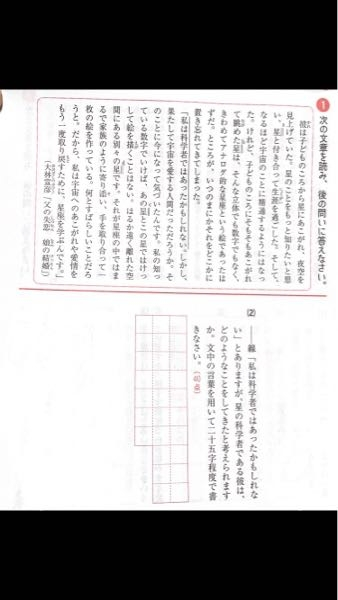 1 次の文章を読み、後の問いに答えなさい。
彼は子どものころから星にあこがれ、夜空を
見上げていた。星のことをもっと知りたいと思
い、星と付き合って生涯を過ごした。そして、
なるほど宇宙のことに精通するようにはなっ
た。けれど、子どものころにそもそもあこがれ
て眺めた星は、そんな立体でも数字でもなく、
きわめてアナログ的な星座という絵であったは
ずだ。ところが、いつのまにかそれをどこかに
置き忘れてきてしまった。
「私は科学者ではあったかもしれない。しかし、
果たして宇宙を愛する人間だっただろうか。そ
のことに今になって気づいたんです。私の知っ
ている数字でいけば、あの星とこの星ではけっ
して絵を描くことはない。はるか遠く離れた空
間にある別々の星です。それが星座の中ではま
るで家族のように寄り添い、手を取り合って一
枚の絵を作っている。何とすばらしいことだろ
うと。だから、私は宇宙へのあこがれや愛情を
もう一度取り戻すために、星座を学ぶんです。」
大林宣彦「父の失恋 娘の結婚」
(2) ――線「私は科学者ではあったかもしれな
い」とありますが、星の科学者である彼は、
どのようなことをしてきたと考えられます
か。文中の言葉を用いて二十五字程度で書
きなさい。(40点)